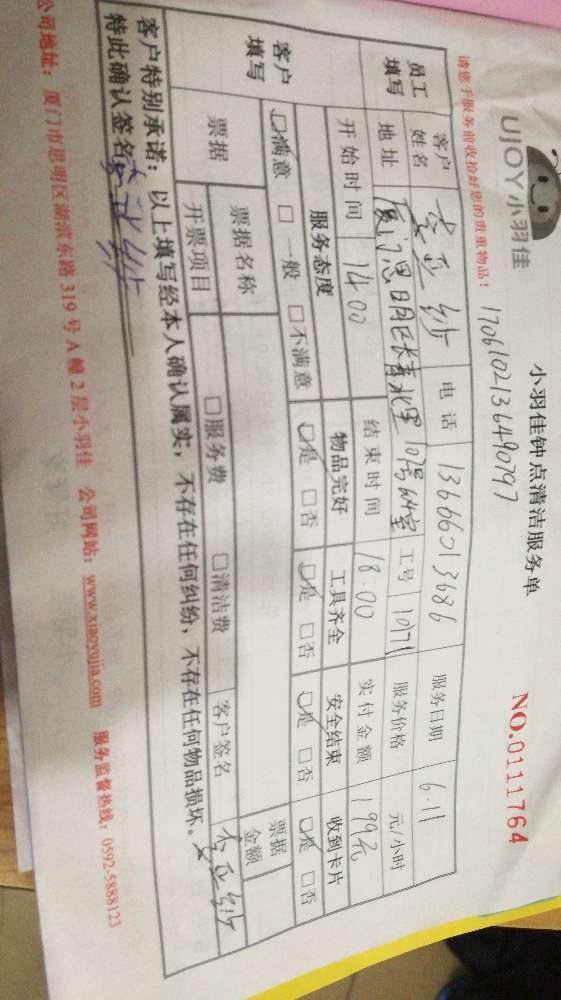 UJOY小羽佳
小羽佳钟点清洁服务单
NO.0111764
1706102136490797
请您于服务前收拾好您的贵重物品！
员工填写
客户姓名 李亚纷 电话 13666013686 服务日期 6.11
地址 厦门思明区长青北里107号 工号 1071 服务价格 元/小时
开始时间 14:00 结束时间 18:00 实付金额 199元
客户填写
服务态度 物品完好 工具齐全 安全结束 收到卡片
☑满意 □一般 □不满意 ☑是 □否 ☑是 □否 ☑是 □否 ☑是 □否
票据 票据名称 票据金额
开票项目 □服务费 □清洁费 客户签名 李亚纷
客户特别承诺：以上填写经本人确认属实，不存在任何纠纷，不存在任何物品损坏。
特此确认签名：李亚纷
公司地址：厦门市思明区湖滨东路319号A幢2层小羽佳 公司网站：www.xiaoyujia.com 服务监督热线：0592-5888123